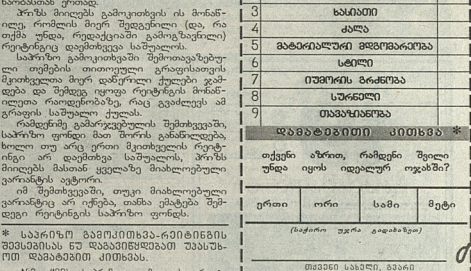 ნაირობასთან ერთად.
პრიზს მიიღებს გამოკითხვის ის მონაწ-
ილე, რომლის მიერ შედგენილი (და, რა
თქმა უნდა, რედაქციაში გამოგზავნილი)
რეიტინგიც დაემთხვევა საშუალოს.
საპრიზო გამოკითხვაში შემოთავაზებუ-
ლი თემების თითოეული გრაფისათვის
მკითხველთა მიერ დაწერილი ქულები ჯამ-
დება და შემდეგ იყოფა რეიტინგის მონაწ-
ილეთა რაოდენობაზე, რაც გვაძლევს ამ
გრაფის საშუალო ქულას.
რამდენიმე გამარჯვებულის შემთხვევაში,
საპრიზო ფონდი მათ შორის განაწილდება,
ხოლო თუ არც ერთი მკითხველის რეიტ-
ინგი არ დაემთხვა საშუალოს, პრიზს
მიიღებს მასთან ყველაზე მიახლოებული
ვარიანტის ავტორი.
იმ შემთხვევაში, თუკი მიახლოებული
ვარიანტიც არ იქნება, თანხა ემატება შემ-
დეგი რეიტინგის საპრიზო ფონდს.
* საპრიზო გამოკითხვა-რეიტინგის
შევსებისას ნუ დაგავიწყდებათ უპასუხ-
ოთ დამატებით კითხვას.
3 ხასიათი
4 ძალა
5 მატერიალური მდგომარეობა
6 სტილი
7 იუმორის გრძნობა
8 სურნელი
9 თავაზიანობა
დამატებითი კითხვა *
თქვენი აზრით, რამდენი შვილი
უნდა იყოს იდეალურ ოჯახში?
ერთი ორი სამი მეტი
(საჭირო უჯრა გადახაზეთ)
თქვენი სახელი, გვარი